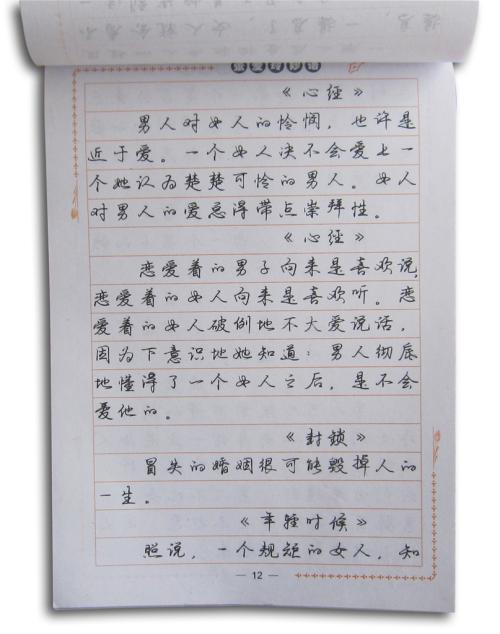 《心经》
男人对女人的怜悯，也许是
近于爱。一个女人决不会爱上一
个她认为楚楚可怜的男人。女人
对男人的爱总得带点崇拜性。
《心经》
恋爱着的男子向来是喜欢说，
恋爱着的女人向来是喜欢听。恋
爱着的女人破例地不大爱说话，
因为下意识地她知道：男人彻底
地懂得了一个女人之后，是不会
爱他的。
《封锁》
冒失的婚姻很可能毁掉人的
一生。
《年轻时候》
照说，一个规矩的女人，知
— 12 —